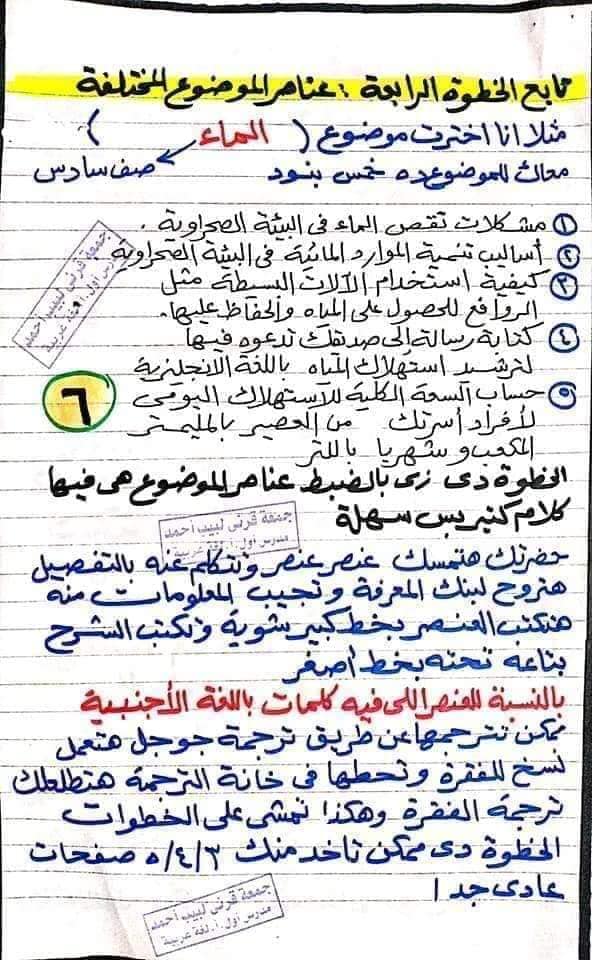 تابع الخطوة الرابعة : عناصر الموضوع المختلفة
مثلا انا اخترت موضوع ( الماء )
معاك للموضوع ده خمس بنود صف سادس
١ مشكلات نقص الماء فى البيئة الصحراوية .
٢ أساليب تنمية الموارد المائية فى البيئة الصحراوية
٣ كيفية استخدام الآلات البسيطة مثل
الروافع للحصول على المياه والحفاظ عليها.
٤ كتابة رسالة إلى صديقك تدعوه فيها
لترشيد استهلاك المياه باللغة الانجليزية
٥ حساب السعة الكلية للاستهلاك اليومى
لأفراد أسرتك من العصير بالمليمتر
المكعب و شهريا باللتر
٦
الخطوة دى زى بالضبط عناصر الموضوع هى فيها
كلام كتير بس سهلة
حضرتك هتمسك عنصر عنصر وتتكلم عنه بالتفصيل
هتروح لبنك المعرفة وتجيب المعلومات منه
هتكتب العنصر بخط كبير شوية وتكتب الشرح
بتاعه تحته بخط أصغر
بالنسبة للعنصر اللى فيه كلمات باللغة الأجنبية
ممكن تترجمها عن طريق ترجمة جوجل هتعمل
نسخ للفقرة وتحطها فى خانة الترجمة هتطلعلك
ترجمة الفقرة وهكذا تمشى على الخطوات
الخطوة دى ممكن تاخد منك ٥/٤/٣ صفحات
عادى جدا
جمعة قرنى لبيب احمد
مدرس أول .أ. لغة عربية
جمعة قرنى لبيب احمد
مدرس أول .أ. لغة عربية
جمعة قرنى لبيب احمد
مدرس أول .أ. لغة عربية